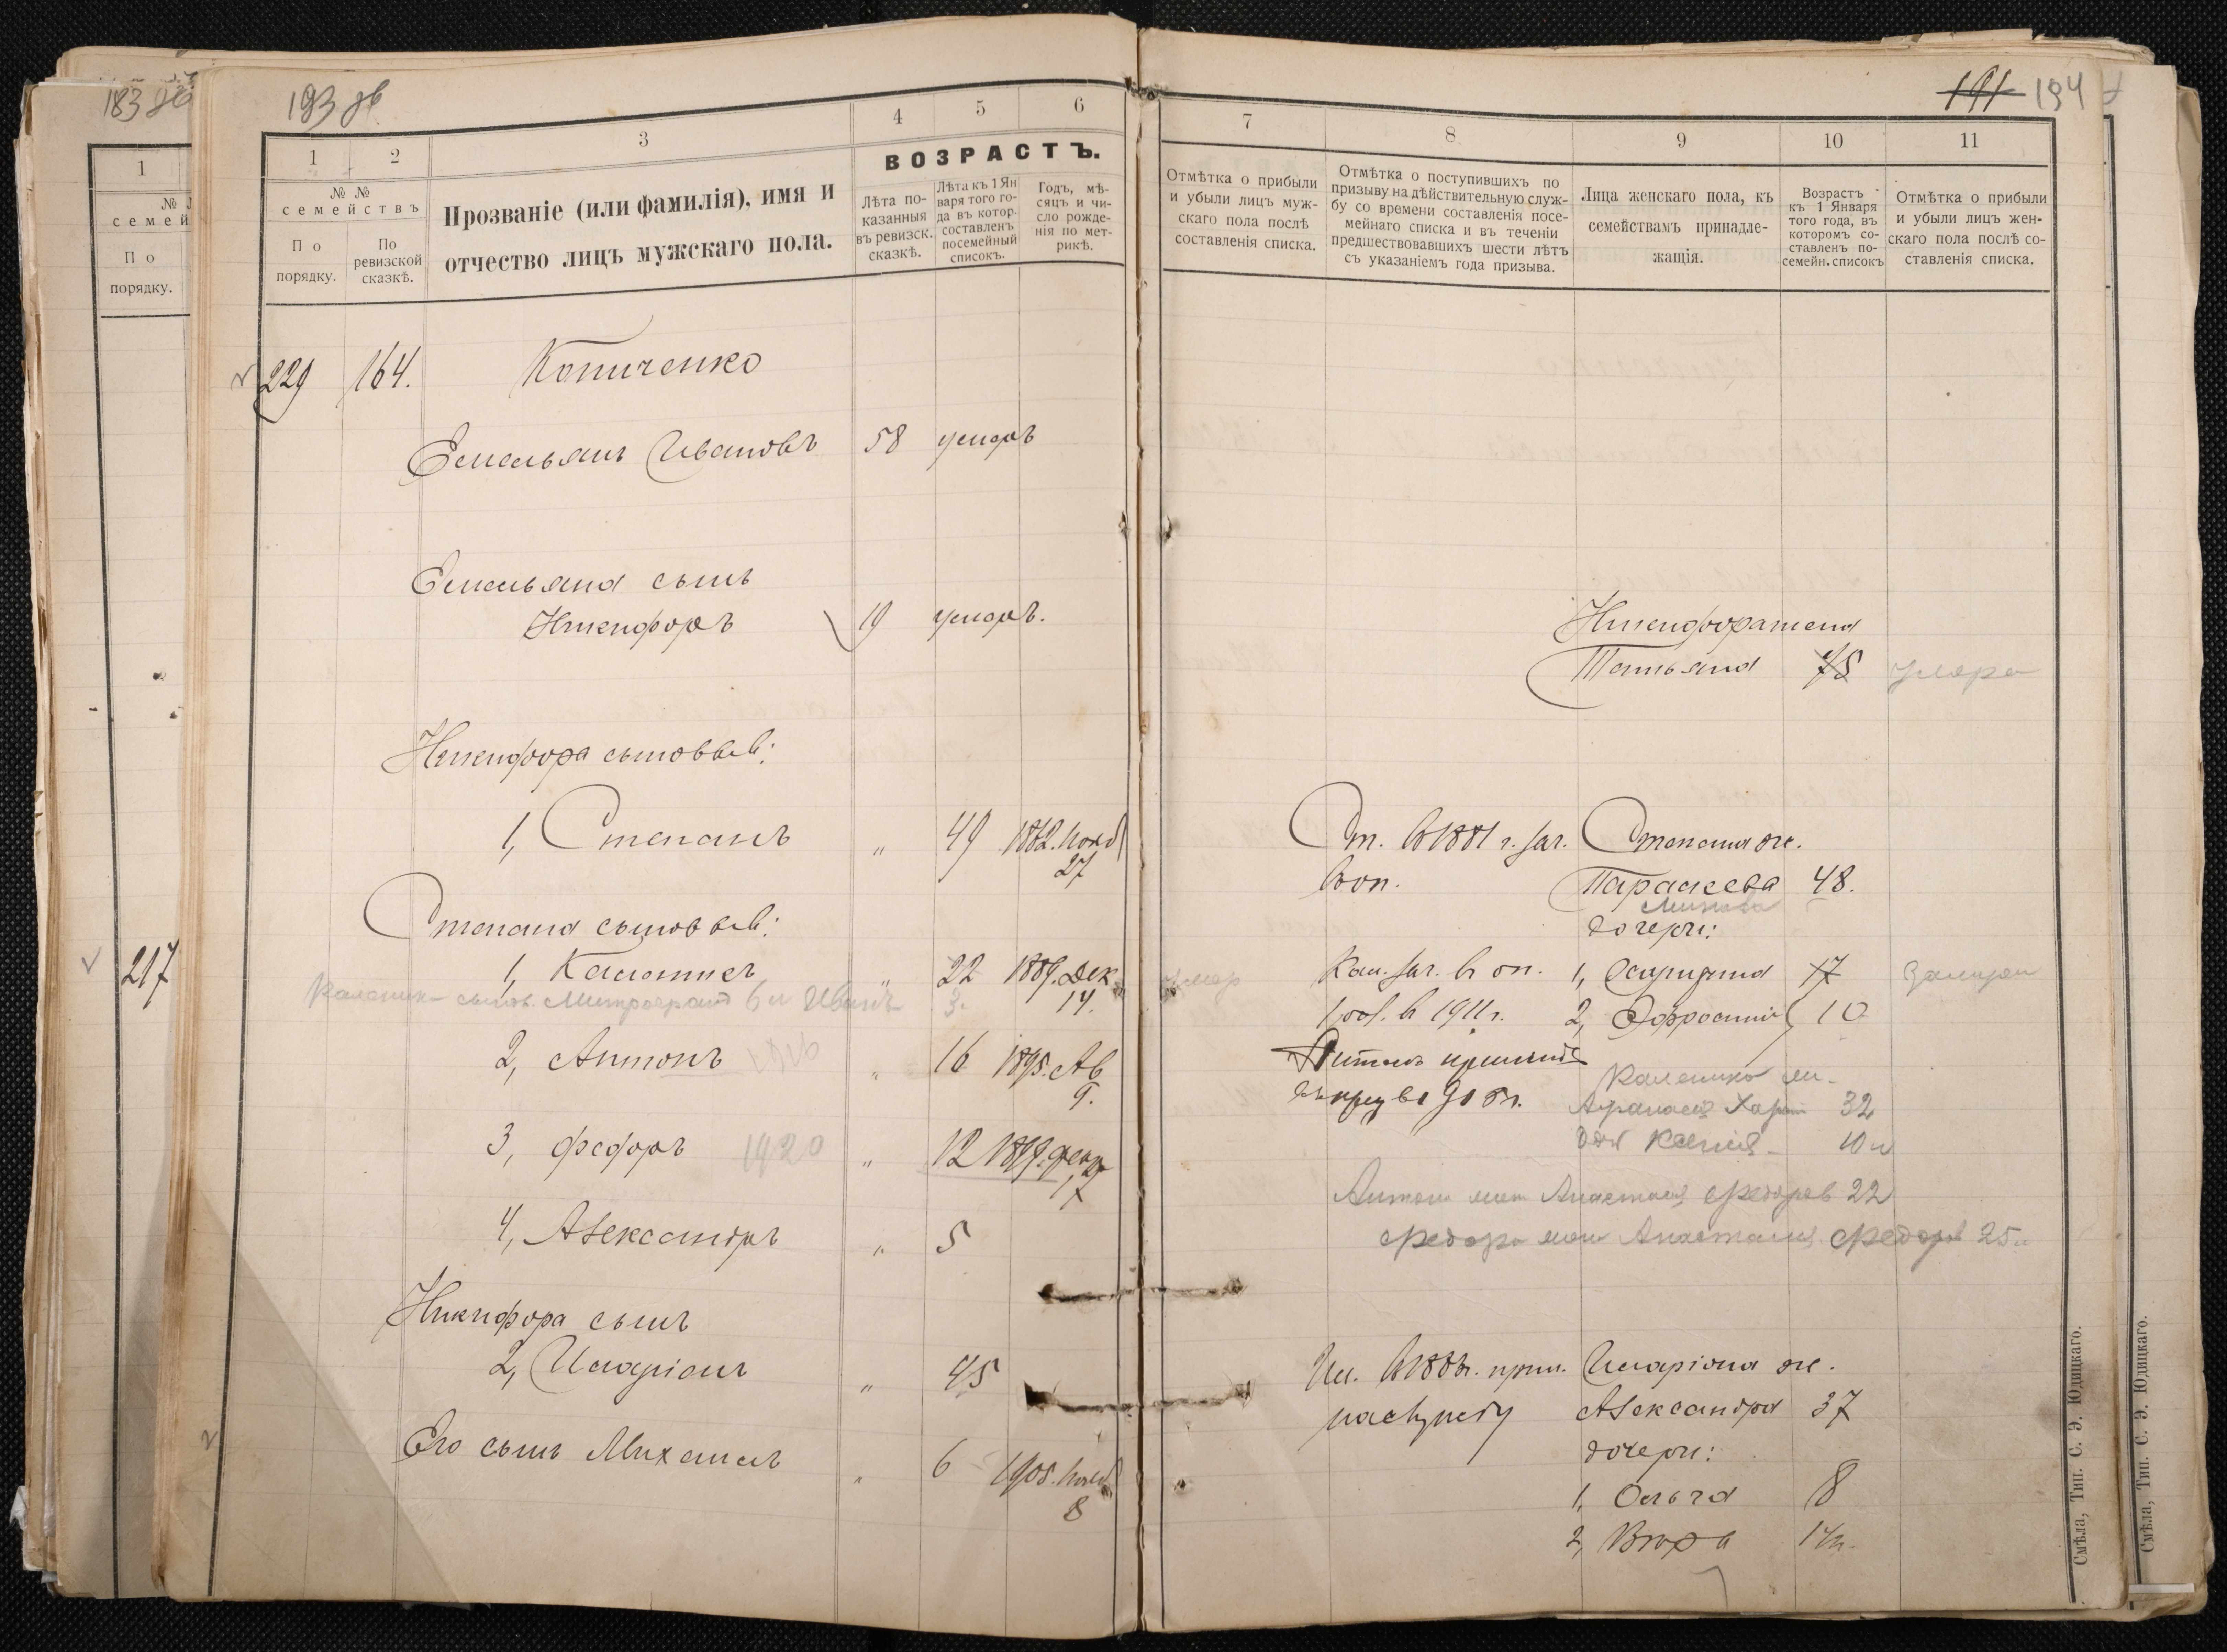 183 об
1
№
семей
По
порядку.
217
193 об
1
2
3
4
5
6
№ №
семействъ
По
порядку.
По
ревизской
сказкѣ.
Прозваніе (или фамилія), имя и
отчество лицъ мужскаго пола.
ВОЗРАСТЪ.
Лѣта по-
казанныя
въ ревизск.
сказкѣ.
Лѣта къ 1 Ян
варя того го-
да въ котор-
составленъ
посемейный
списокъ.
Годъ, мѣ-
сяцъ и чи-
сло рожде-
нія по мет-
рикѣ.
229 164. Копиченко
Емельянъ Ивановъ 58 умеръ
Емельяна сынъ
Никифоръ 19 умеръ.
Никифора сыновья:
1, Степанъ " 49 1862. Нояб
27
Степана сыновья:
1, Калиникъ " 22 1889. Дек.
14.
Калиника сынов. Митрофанъ 6 л Иванъ 3.
2, Антонъ " 16 1895. Ав
9.
3, Федоръ 1920 " 12 1899. Февр
17
4, Александръ " 5
Никифора сынъ
2, Иларіонъ " 45
Его сынъ Михаилъ " 6 1905. Нояб
8
191 194
7
8
9
10
11
Отмѣтка о прибыли
и убыли лицъ муж-
скаго пола послѣ
составленія списка.
Отмѣтка о поступившихъ по
призыву на дѣйствительную служ-
бу со времени составленія посе-
мейнаго списка и въ теченіи
предшествовавшихъ шести лѣтъ
съ указаніемъ года призыва.
Лица женскаго пола, къ
семействамъ принадле-
жащія.
Возрастъ
къ 1 Января
того года, въ
которомъ со-
ставленъ по-
семейн. списокъ
Отмѣтка о прибыли
и убыли лицъ жен-
скаго пола послѣ со-
ставленія списка.
Никифора жена
Татьяна 75 умера
Ст. в 1881 г. зач. Степана ж.
в оп. Параскева 48.
дочери:
умер Кал. зач. в оп. 1, 17
в 1911 г. 2, Ефросинія 10
Антонъ принятъ
Калиника
32
Ксенія 10 л
Антона жен Анастасія Федоров 22
Федора жен Анастасия Федоров 25 л
Ил. в 1883 г. прин. Иларіона ж.
на службу Александра 37
дочери:
1, Ольга 8
2, Вѣра
Смѣла, Тип. С. Э. Юдицкаго.
Смѣла, Тип. С. Э. Юдицкаго.